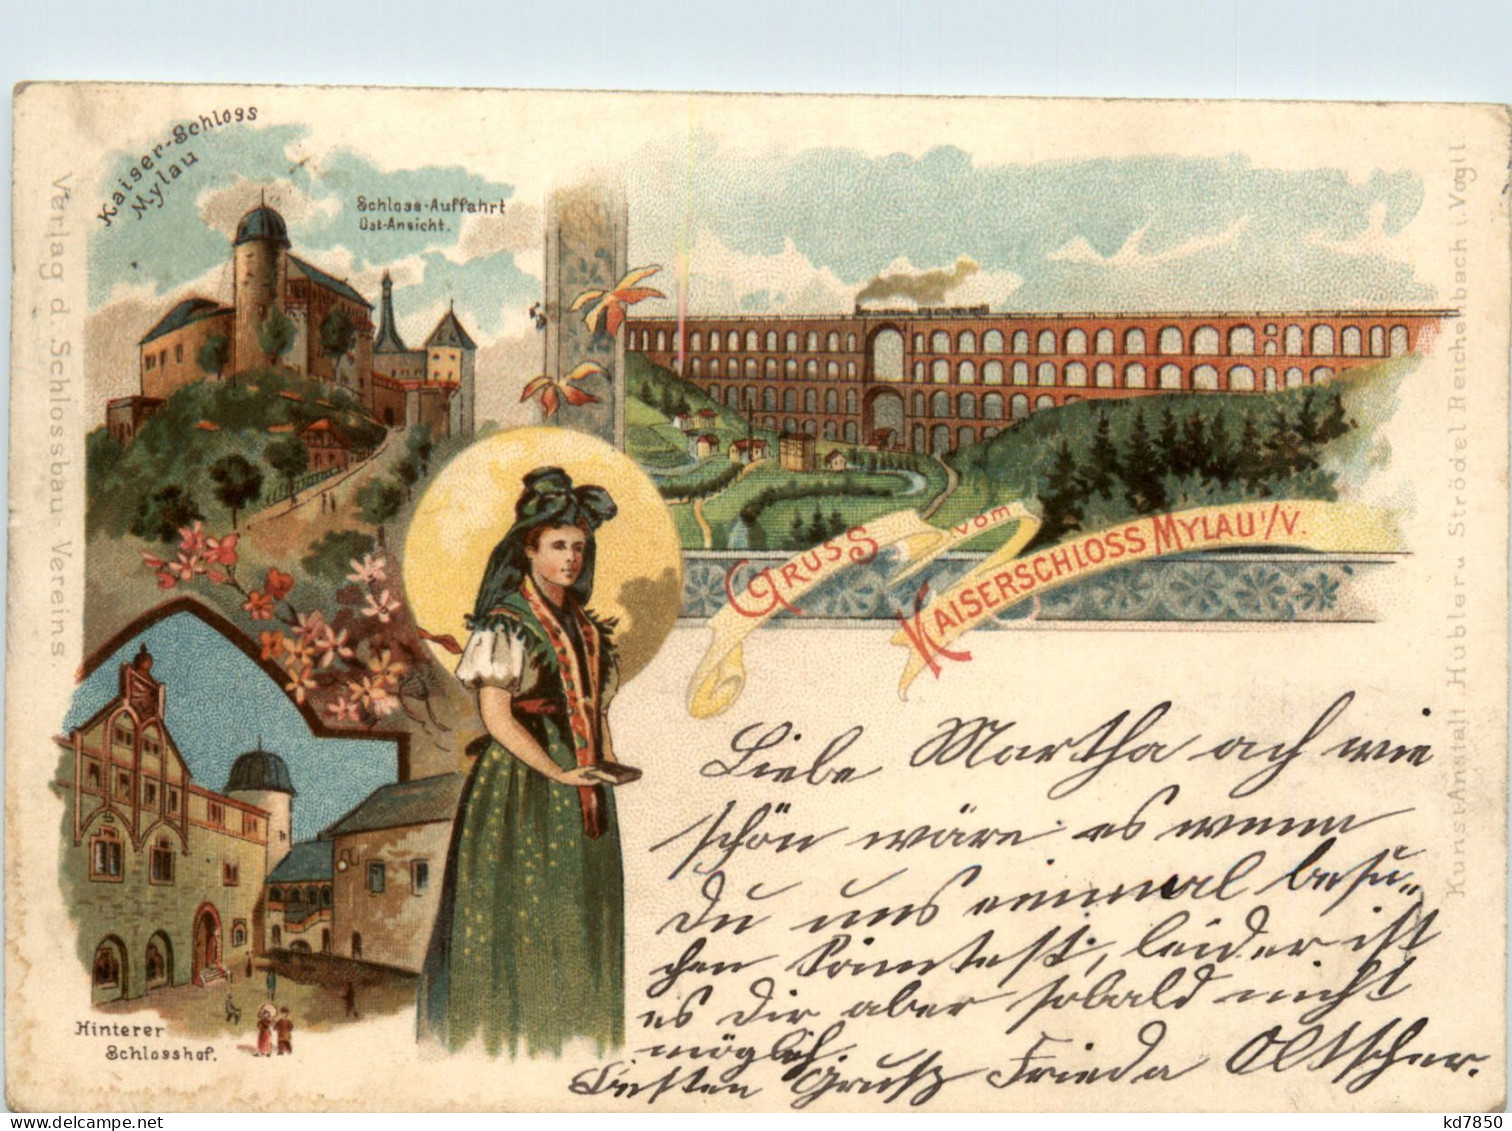 Kaiser-Schloss
Mylau
Schloss-Auffahrt
Ost-Ansicht.
Verlag d. Schlossbau-Vereins.
Gruss vom
Kaiserschloss Mylau i/V.
Kunst-Anstalt Hübler u. Strödel Reichenbach i. Vogtl.
Hinterer
Schlosshof.
Liebe Martha ach wie
schön wäre es wenn
Du uns einmal besu-
chen könntest, leider ist
es Dir aber sobald nicht
möglich.
Besten Gruß Frieda
kd7850